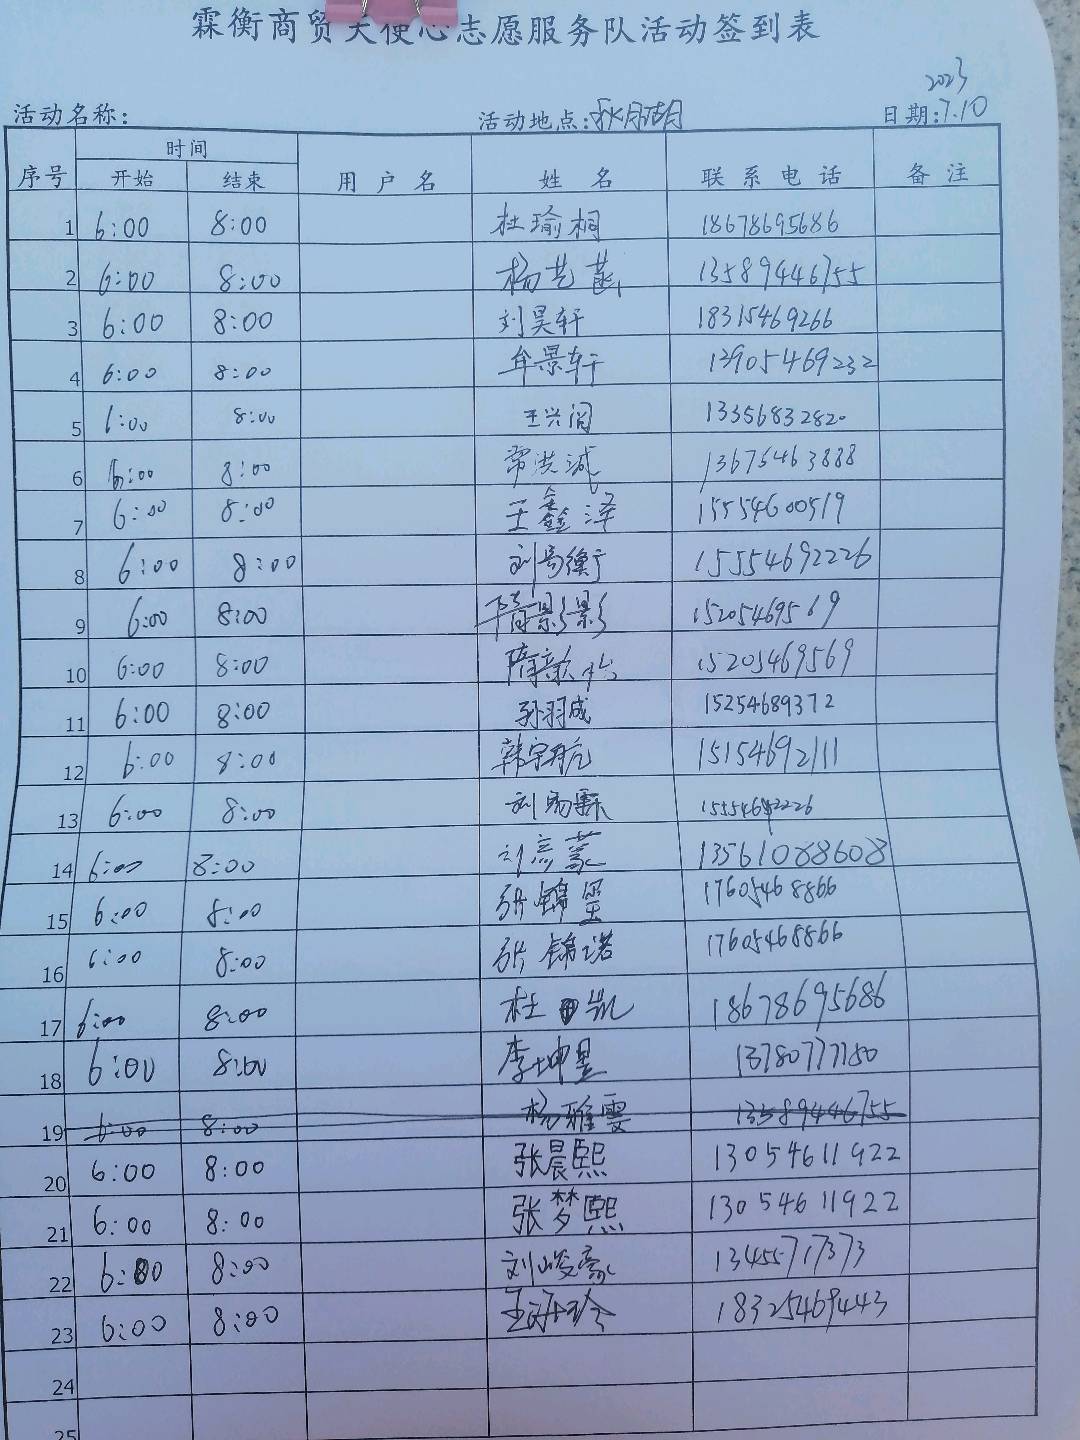 霖衡商贸天使心志愿服务队活动签到表
2023
活动名称: 活动地点:秋月湖 日期:7.10
序号 时间 用户名 姓名 联系电话 备注
开始 结束
1 6:00 8:00 杜瑜桐 18678695686
2 6:00 8:00 杨艺菡 13589446755
3 6:00 8:00 刘昊轩 18315469266
4 6:00 8:00 牟景轩 13905469232
5 6:00 8:00 王兴阔 13356832820
6 6:00 8:00 常洪诚 13675463888
7 6:00 8:00 王鑫泽 15554600519
8 6:00 8:00 刘易衡 15554692226
9 6:00 8:00 隋影影 15205469569
10 6:00 8:00 隋歆 15205469569
11 6:00 8:00 孙羽成 15254689372
12 6:00 8:00 韩宇航 15154692111
13 6:00 8:00 刘易霖 15554692226
14 6:00 8:00 13561088608
15 6:00 8:00 张锦玺 17605468866
16 6:00 8:00 张锦诺 17605468866
17 6:00 8:00 杜凯 18678695686
18 6:00 8:00 李坤昱 13780777150
19 6:00 8:00 杨雅雯 13589446755
20 6:00 8:00 张晨熙 13054611922
21 6:00 8:00 张梦熙 13054611922
22 6:00 8:00 刘峻豪 13455717373
23 6:00 8:00 18325469443
24
25